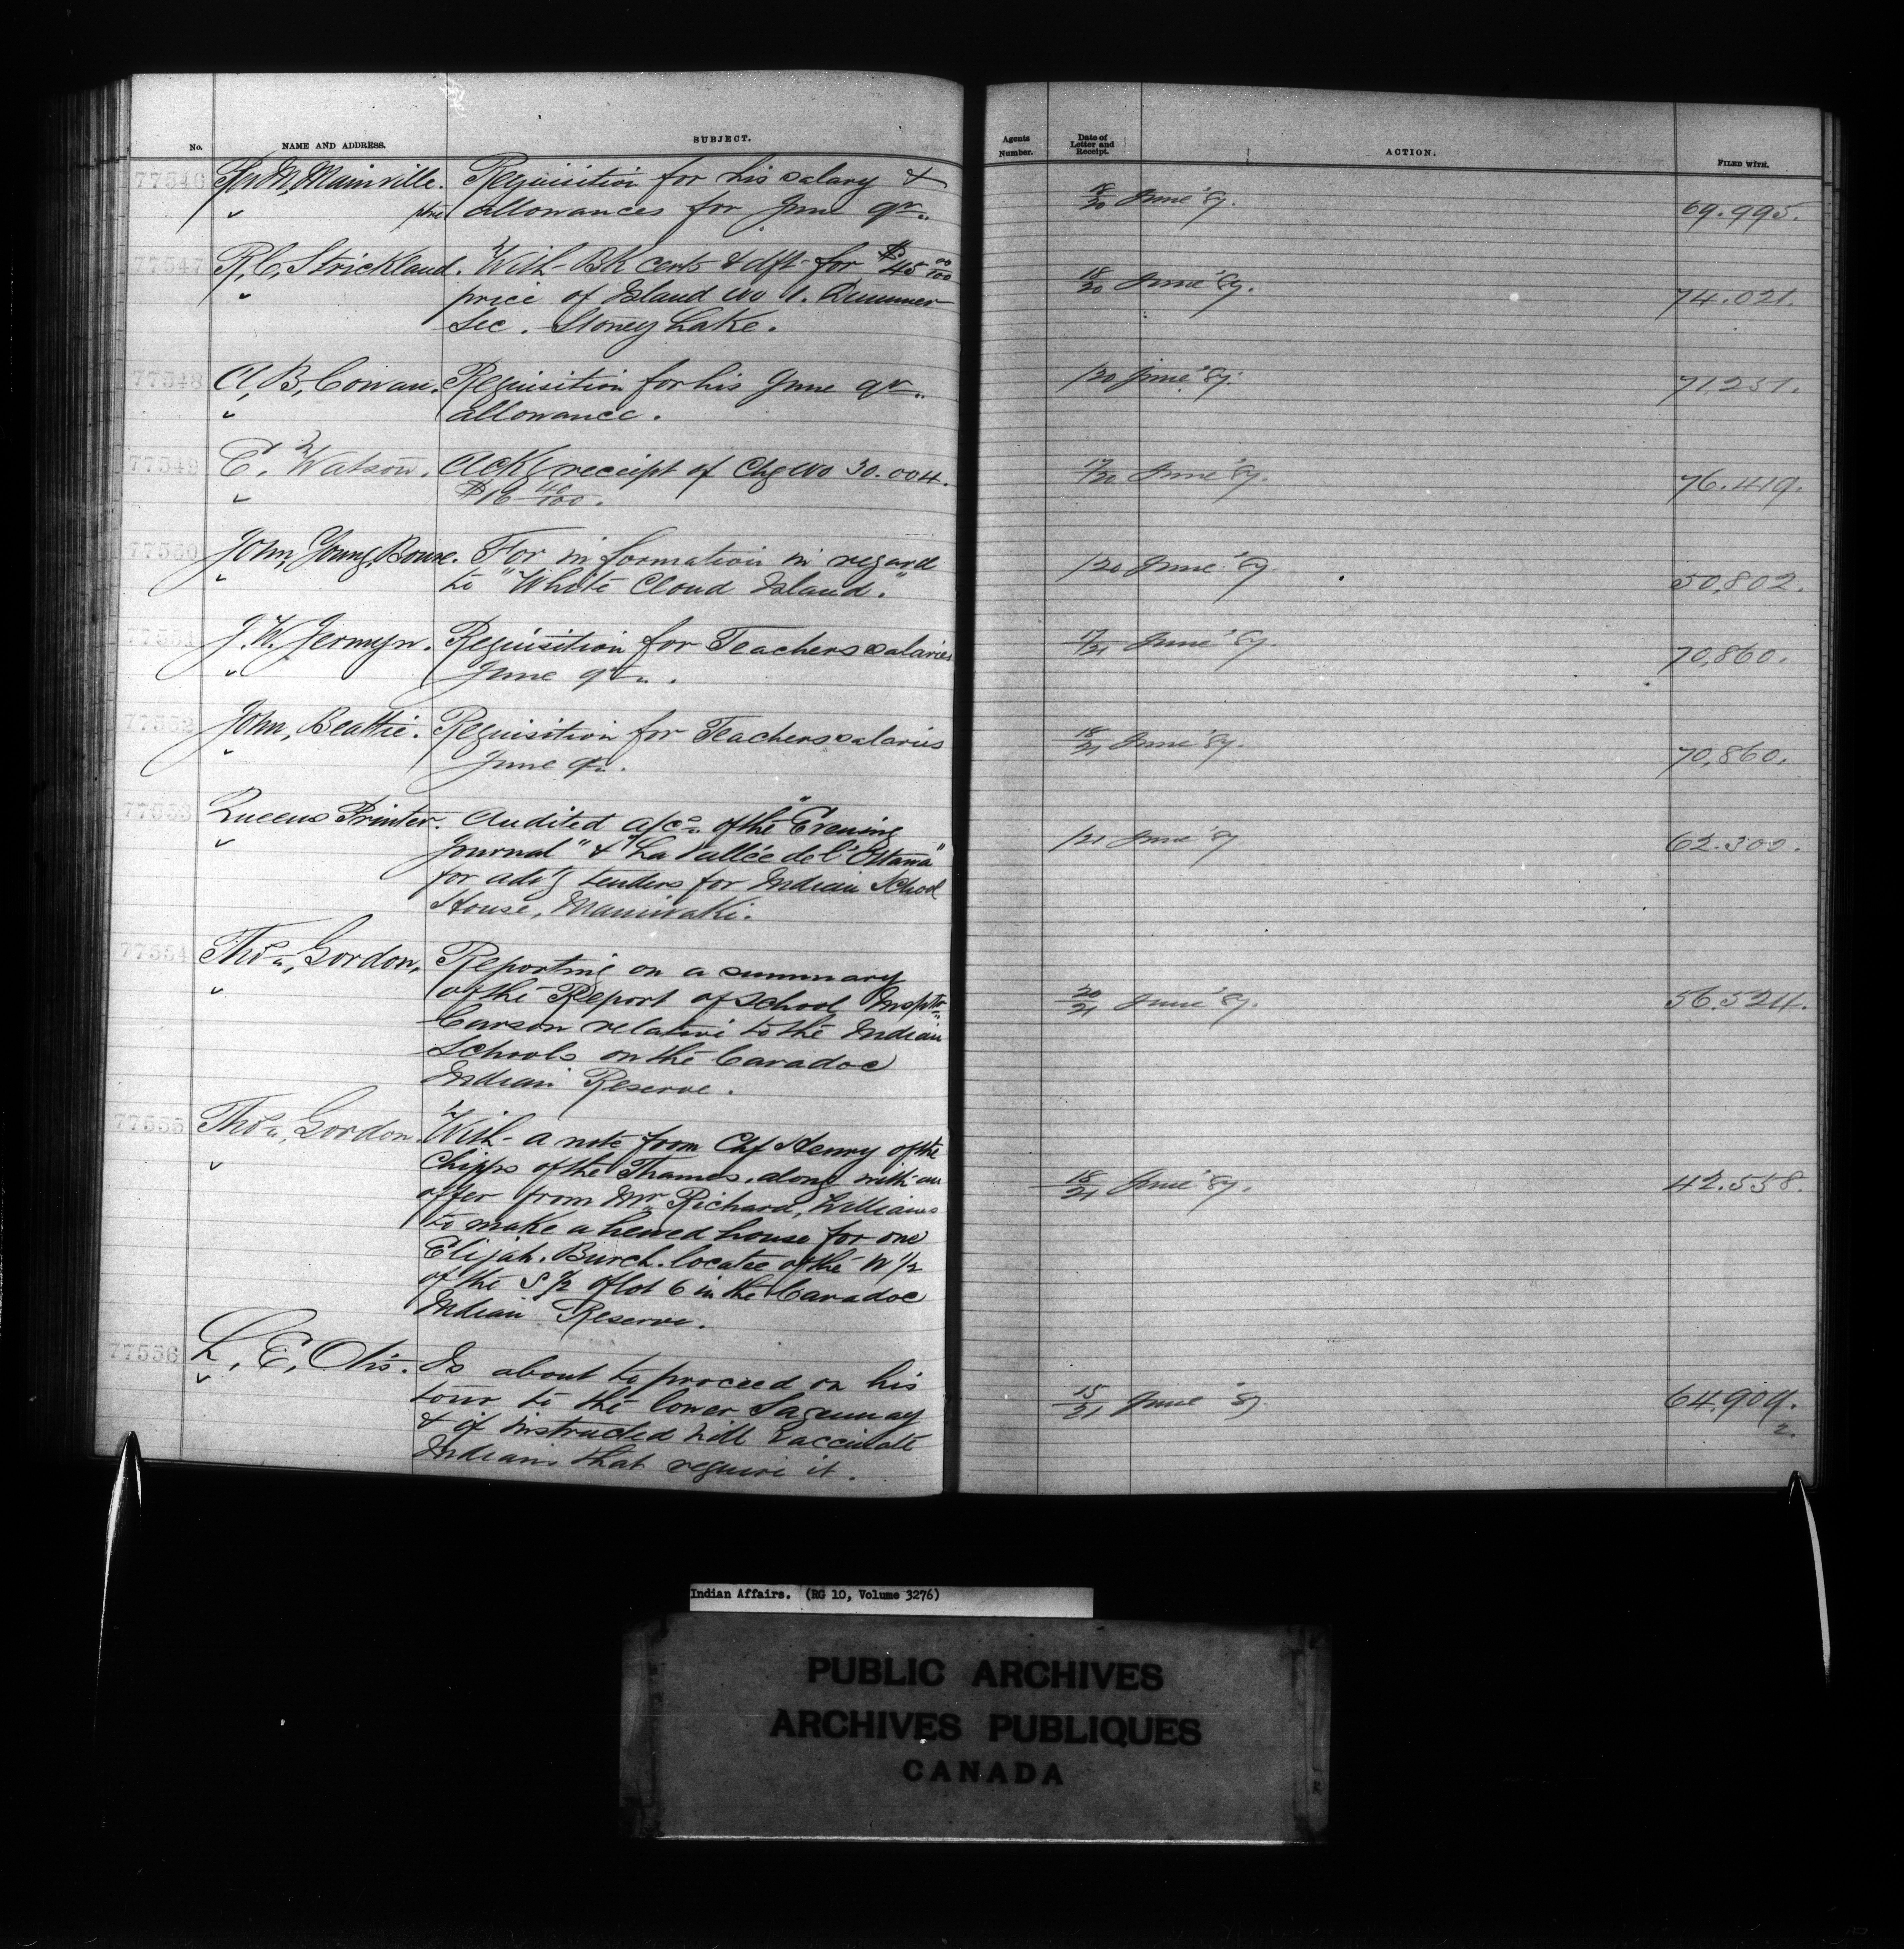 No. NAME AND ADDRESS. SUBJECT. Agents Number. Date of Letter and Receipt. ACTION. FILED WITH.
77546 M, Mainville. Requisition for his salary & 18/20 June '87. 69.995.
allowances for June qr.
77547 R, C, Strickland. With BK cert & dft for $45 00/100 18/20 June '87. 74.021.
price of Island No 1. Dummer
Sec. Stoney Lake.
77548 A, B, Cowan. Requisition for his June qr. /20 June '87. 71.251.
allowance.
77549 E, Watson. Ackg receipt of Chq No 30.004. 17/20 June '87. 76.419.
$16 40/100.
77550 John, Young, Bowie. For information in regard /20 June '87 50,802.
to "White Cloud Island."
77551 J. W. Jermyn. Requisition for Teachers salaries 17/21 June '87. 70,860.
June qr.
77552 John, Beattie. Requisition for Teachers salaries 18/21 June '87. 70,860.
June qr.
77553 Queens Printer. Audited a/cs of the "Evening /21 June '87 62.300.
Journal" & "La Vallée de l'Ottawa"
for advg tenders for Indian School
House, Maniwaki.
77554 Thos, Gordon. Reporting on a summary
of the Report of School Insptr 20/21 June '87. 56.524.
Carson relative to the Indian
Schools on the Caradoc
Indian Reserve.
77555 Thos, Gordon. With a note from Chf Henry of the
Chipps of the Thames, along with an 18/21 June '87. 42.558.
offer from Mr Richard, Williams
to make a hewed house for one
Elijah. Burch. locatee of the W 1/2
of the S 1/2 of lot 6 in the Caradoc
Indian Reserve.
77556 L, E, Otis. Is about to proceed on his
tour to the lower Saguenay 15/21 June '87 64.909.
& if instructed will vaccinate 2.
Indians that require it.
Indian Affairs. (RG 10, Volume 3276)
PUBLIC ARCHIVES
ARCHIVES PUBLIQUES
CANADA